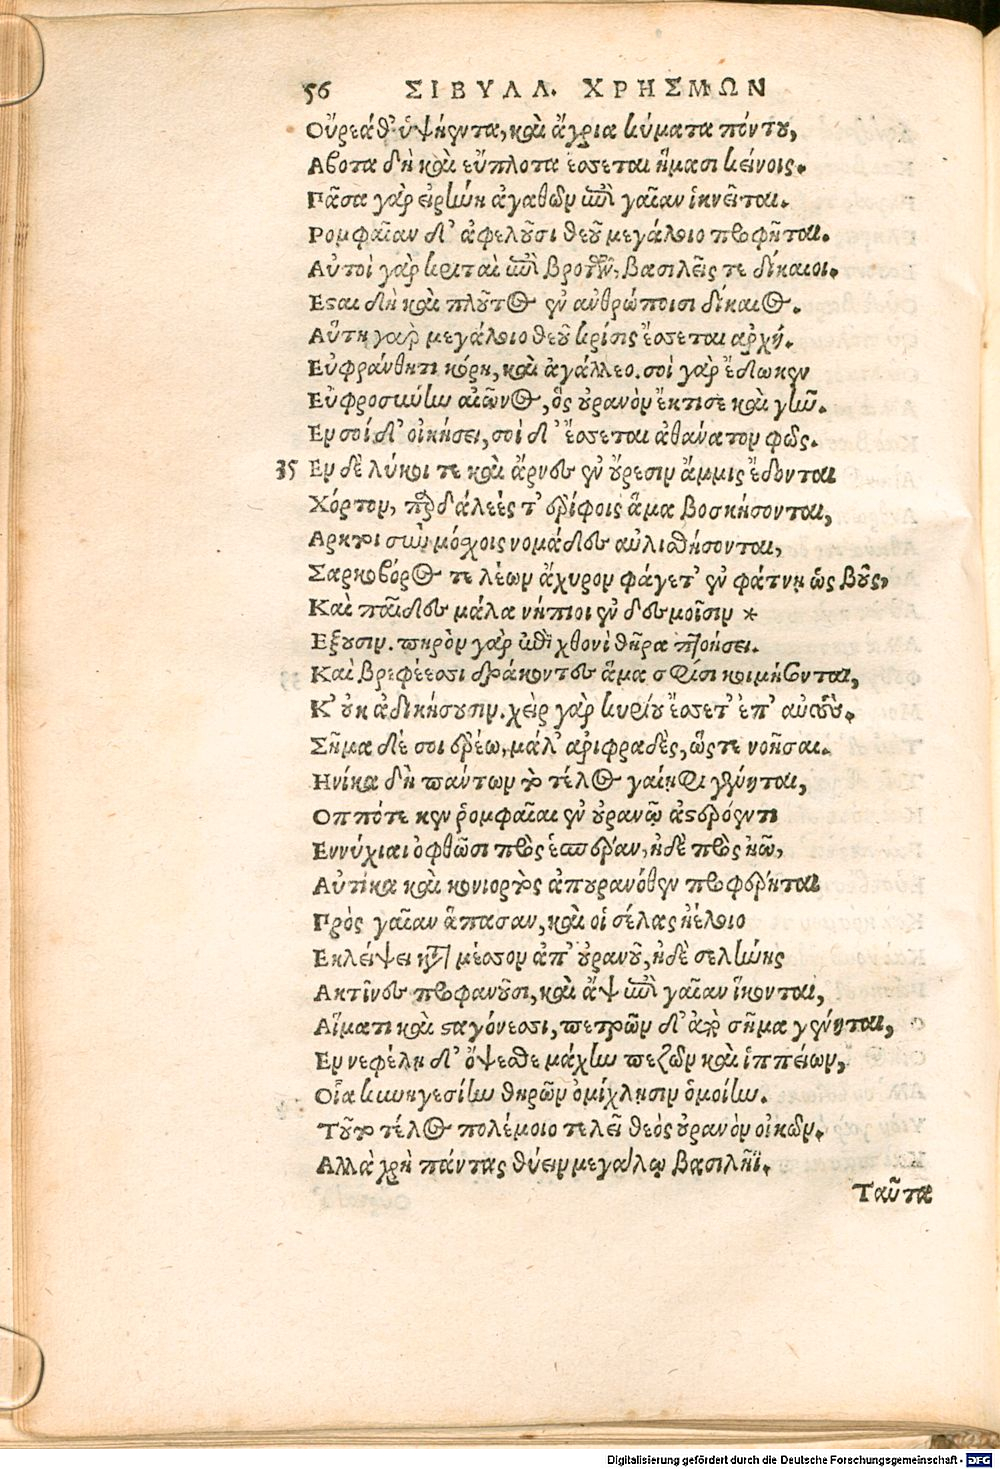 56 ΣΙΒΥΛΛ. ΧΡΗΣΜΩΝ
Οὔρεά θ' ὑψήεντα, καὶ ἄγρια κύματα πόντου,
Αβοτα δὴ καὶ εὔπλοτα ἔσσεται ἤμασι κείνοις.
Πᾶσα γὰρ εἰρήνη ἀγαθῶν ἐπὶ γαῖαν ἱκνεῖται.
Ρομφαῖαν δ' ἀφελοῦσι θεοῦ μεγάλοιο προφῆται.
Αὐτοὶ γὰρ κριταὶ ἐπὶ βροτῶν, βασιλεῖς τε δίκαιοι.
Εςαι δὴ καὶ πλοῦτος ἐν ανθρώποισι δίκαιος.
Αὕτη γαρ μεγάλοιο θεοῦ κρίσις ἔσσεται αρχή.
Εὐφράνθητι κόρη, καὶ ἀγάλλεο. σοὶ γὰρ ἔδωκεν
Εὐφροσύνην αἰῶνος, ὃς οὐρανὸν ἔκτισε καὶ γῆν.
Εν σοὶ δ' οἰκήσει, σοὶ δ' ἔσσεται ἀθάνατον φῶς.
35 Εν δὲ λύκοι τε καὶ ἄρνες ἐν οὔρεσιν ἄμμις ἔδονται
Χόρτον, παρδάλεές τ' ἐρίφοις ἅμα βοσκήσονται,
Αρκτοι σὺν μόσχοις νομάδες αὐλισθήσονται,
Σαρκοβόρος τε λέων ἄχυρον φάγετ' ἐν φάτνῃ ὡς βοῦς,
Καὶ παῖδες μάλα νήπιοι ἐν δεσμοῖσιν *
Εξουσιν. πηρὸν γὰρ ἐπὶ χθονὶ θῆρα ποιήσει.
Καὶ βρεφέεσσι δράκοντες ἅμα σφίσι κοιμήσονται,
Κ' οὐκ ἀδικήσουσιν. χεὶρ γὰρ κυρίου ἔσσετ' ἐπ' αὐτούς.
Σῆμα δέ σοι ἐρέω, μάλ' αριφραδὲς, ὥςτε νοῆσαι.
Ηνίκα δὴ πάντων τὸ τέλος γαίηφι γένηται,
Οππότε κεν ῥομφαῖαι ἐν οὐρανῷ ἀςερόεντι
Εννύχιαι ὀφθῶσι πρὸς ἑσπέραν, ἠδὲ πρὸς ἠῶ,
Αὐτίκα καὶ κονιορτὸς ἀπουρανόθεν προφέρηται
Πρὸς γαῖαν ἅπασαν, καὶ οἱ σέλας ἠέλοιο
Εκλείψει κατὰ μέσσον ἀπ' οὐρανοῦ, ἠδὲ σελήνης
Ακτῖνες προφανοῦσι, καὶ ἄψ ἐπὶ γαῖαν ἵκονται,
Αἵματι καὶ ςαγόνεσσι, πετρῶν δ' ἄπο σῆμα γένηται,
Εν νεφέλῃ δ' ὄψεσθε μάχην πεζῶν καὶ ἱππείων,
Οἷα κυνηγεσίην θηρῶν ὀμίχλησιν ὁμοίην.
Τοῦτο τέλος πολέμοιο τελεῖ θεὸς οὐρανὸν οἰκῶν.
Αλλὰ χρὴ πάντας θύειν μεγάλῳ βασιλῆϊ.
Ταῦτα
Digitalisierung gefördert durch die Deutsche Forschungsgemeinschaft - DFG